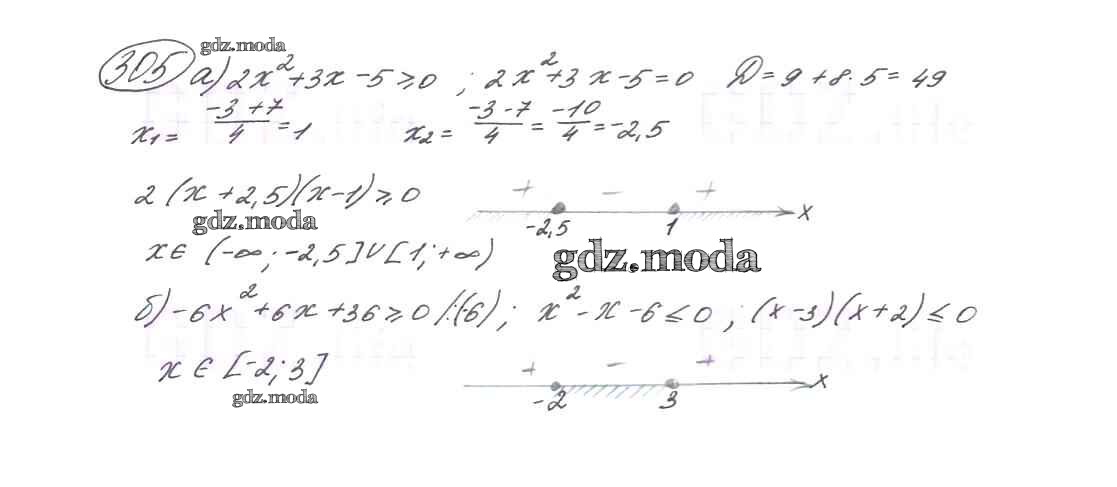 gdz.moda
305 а) 2x² + 3x - 5 ≥ 0 ; 2x² + 3x - 5 = 0 D = 9 + 8·5 = 49
x₁ = (-3+7)/4 = 1 x₂ = (-3-7)/4 = -10/4 = -2,5
2(x + 2,5)(x - 1) ≥ 0 + − +
gdz.moda -2,5 1 x
x ∈ (-∞; -2,5] ∪ [1; +∞) gdz.moda
б) -6x² + 6x + 36 ≥ 0 /:(-6) ; x² - x - 6 ≤ 0 ; (x - 3)(x + 2) ≤ 0
x ∈ [-2; 3] + − +
gdz.moda -2 3 x